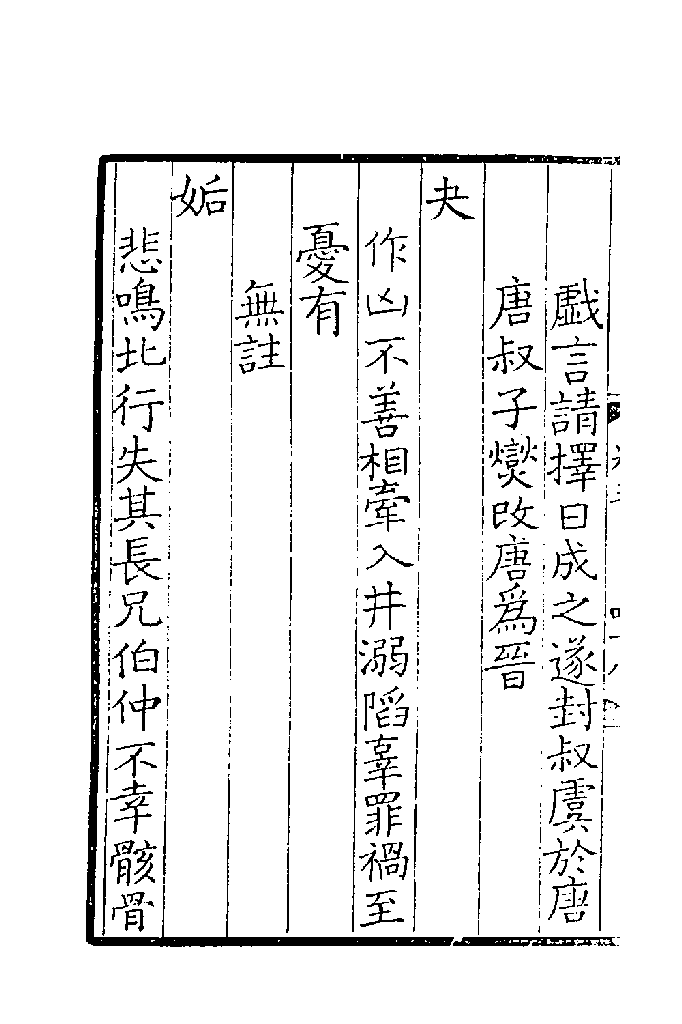 戯言請擇日成之遂封叔虞於唐
唐叔子燮改唐爲晉
夬
作凶不善相牽入井溺陷辜罪禍至
憂有
無註
姤
悲鳴北行失其長兄伯仲不幸骸骨